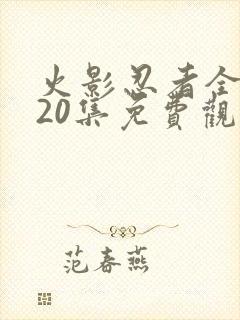 火影忍者全
20集免費觀
范春燕